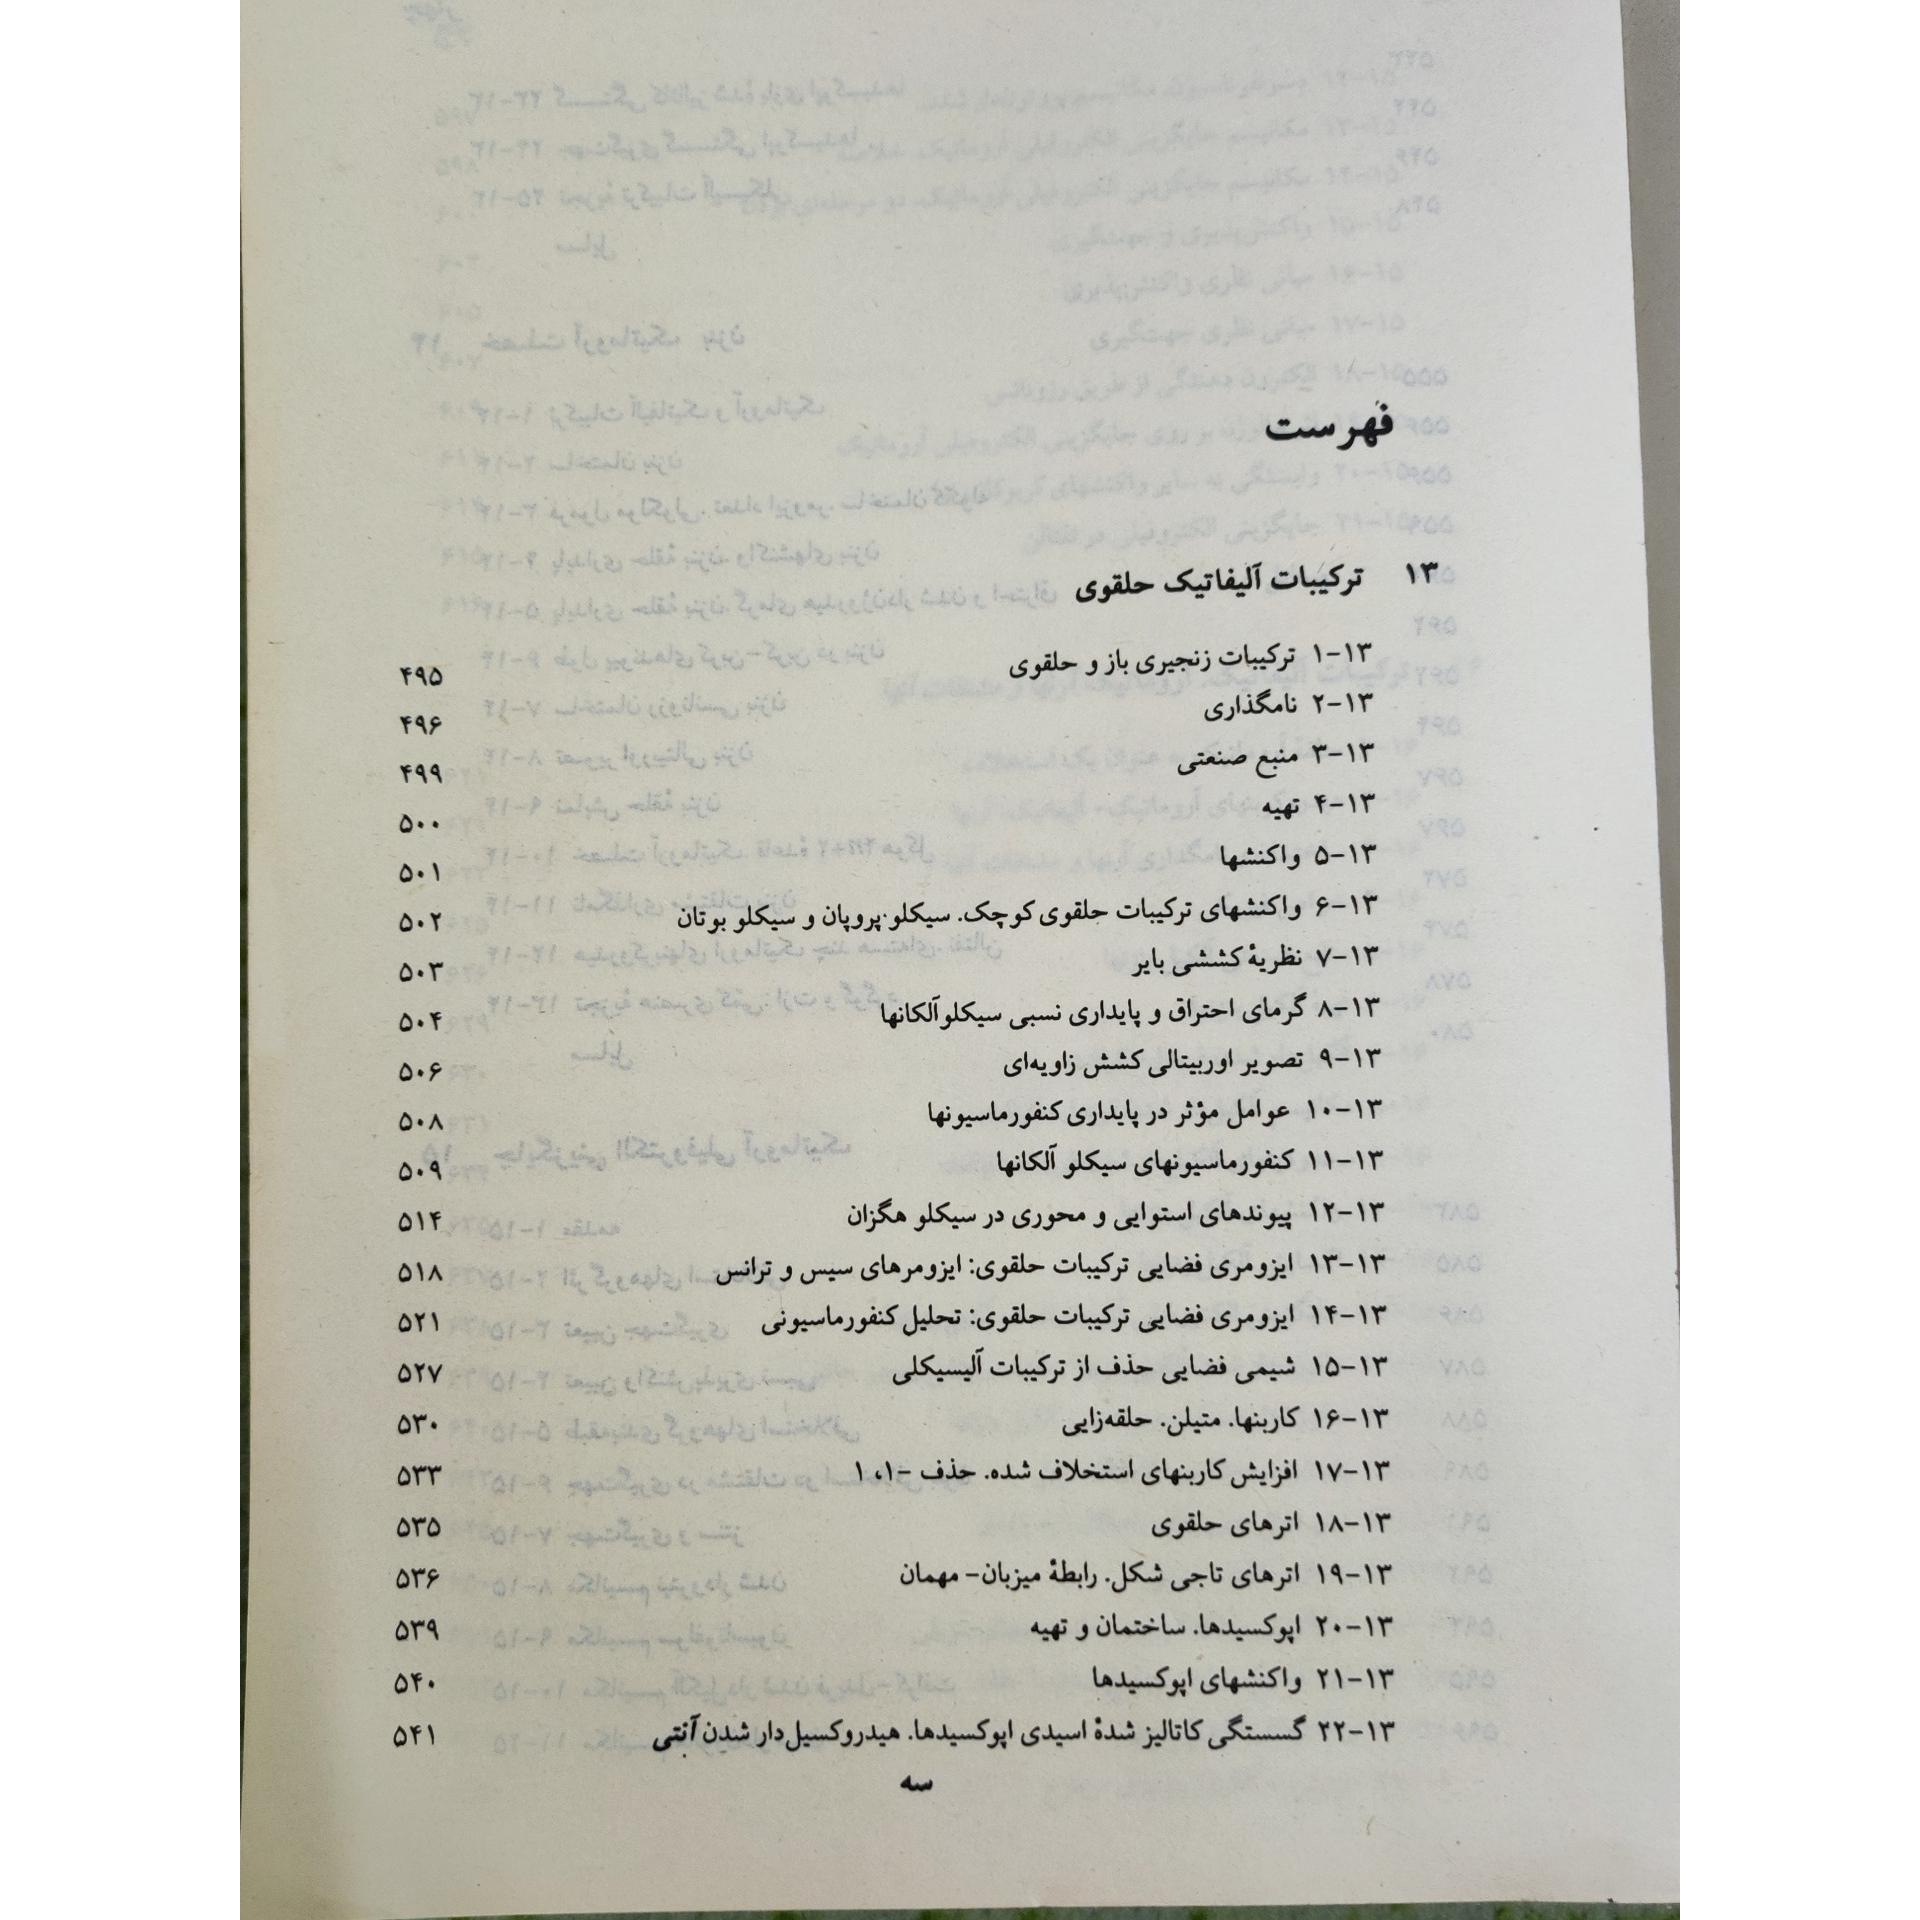 فهرست
۱۳ ترکیبات آلیفاتیک حلقوی
۱۳-۱ ترکیبات زنجیری باز و حلقوی ۴۹۵
۱۳-۲ نامگذاری ۴۹۶
۱۳-۳ منبع صنعتی ۴۹۹
۱۳-۴ تهیه ۵۰۰
۱۳-۵ واکنشها ۵۰۱
۱۳-۶ واکنشهای ترکیبات حلقوی کوچک. سیکلو پروپان و سیکلو بوتان ۵۰۲
۱۳-۷ نظریهٔ کششی بایر ۵۰۳
۱۳-۸ گرمای احتراق و پایداری نسبی سیکلوآلکانها ۵۰۴
۱۳-۹ تصویر اوربیتالی کشش زاویه‌ای ۵۰۶
۱۳-۱۰ عوامل مؤثر در پایداری کنفورماسیونها ۵۰۸
۱۳-۱۱ کنفورماسیونهای سیکلو آلکانها ۵۰۹
۱۳-۱۲ پیوندهای استوایی و محوری در سیکلو هگزان ۵۱۴
۱۳-۱۳ ایزومری فضایی ترکیبات حلقوی: ایزومرهای سیس و ترانس ۵۱۸
۱۳-۱۴ ایزومری فضایی ترکیبات حلقوی: تحلیل کنفورماسیونی ۵۲۱
۱۳-۱۵ شیمی فضایی حذف از ترکیبات آلیسیکلی ۵۲۷
۱۳-۱۶ کاربنها. متیلن. حلقه‌زایی ۵۳۰
۱۳-۱۷ افزایش کاربنهای استخلاف شده. حذف -۱، ۱ ۵۳۳
۱۳-۱۸ اترهای حلقوی ۵۳۵
۱۳-۱۹ اترهای تاجی شکل. رابطهٔ میزبان- مهمان ۵۳۶
۱۳-۲۰ اپوکسیدها. ساختمان و تهیه ۵۳۹
۱۳-۲۱ واکنشهای اپوکسیدها ۵۴۰
۱۳-۲۲ گسستگی کاتالیز شدهٔ اسیدی اپوکسیدها. هیدروکسیل‌دار شدن آنتی ۵۴۱
سه